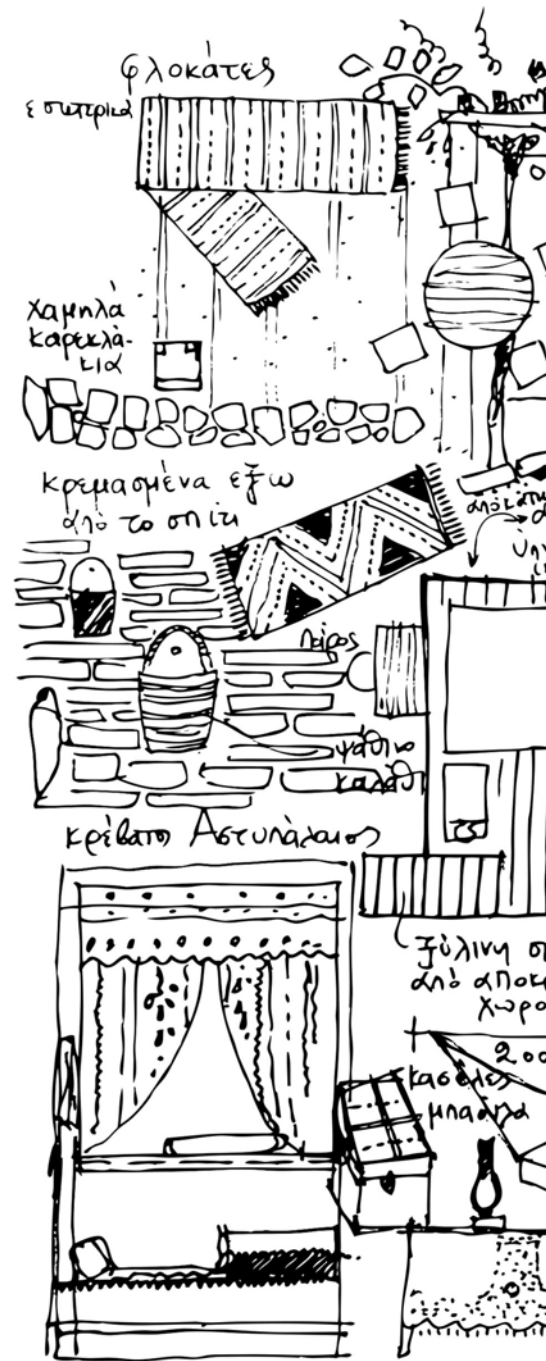 φλοκάτες
εσωτερικά
χαμηλά
καρεκλά-
κια
κρεμασμένα έξω
από το σπίτι
ψάθινο
καλάθι
κρέβατι Αστυπάλαιας
ξύλινη
από
χωρο
200
κασέλες
μπαούλα